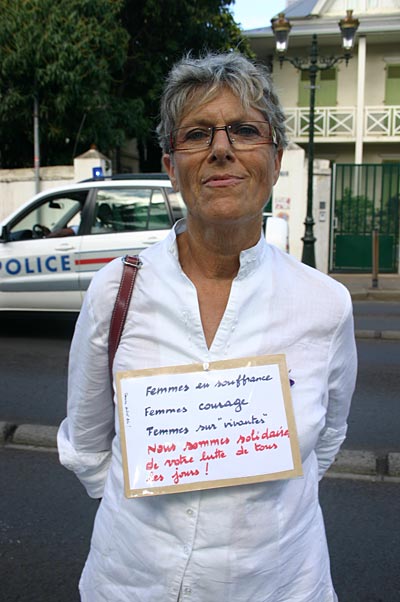 POLICE
Femmes en souffrance
Femmes courage
Femmes sur "vivantes"
Nous sommes solidaires
de votre lutte de tous
les jours !